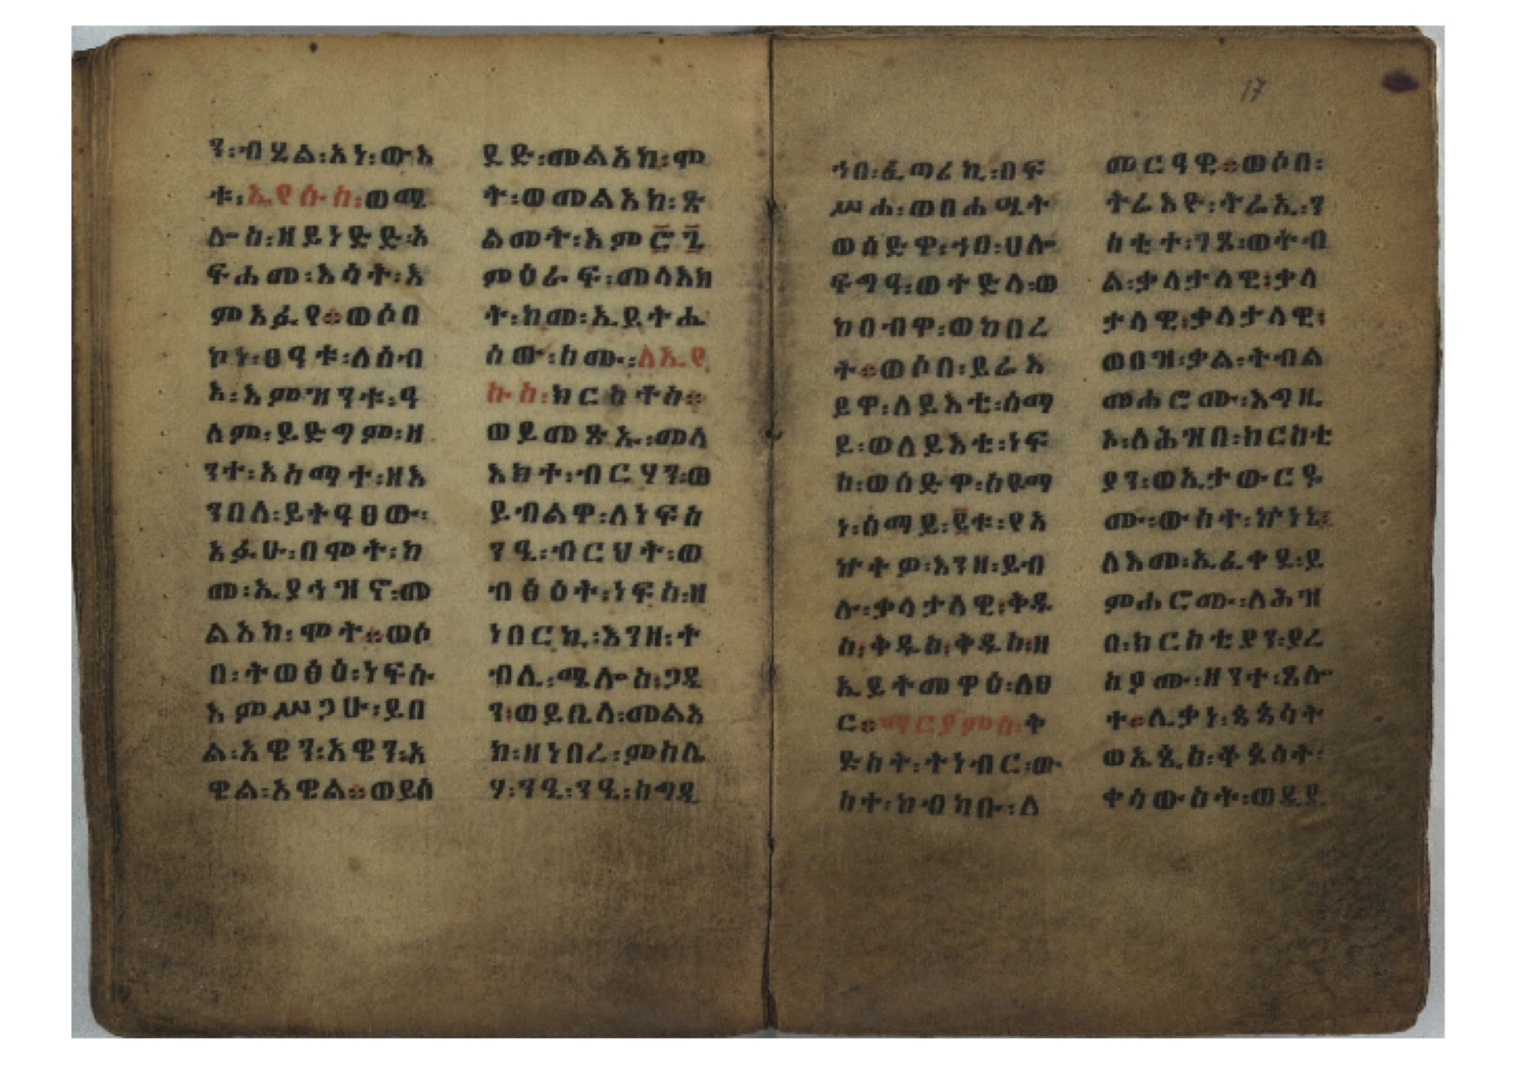 ን፡ብሂል፡አነ፡ውእ
ቱ፡ኢየሱስ፡ወሚ
ሎስ፡ዘይነድድ፡እ
ፍሐመ፡እሳት፡እ
ምአፈየ።ወሶበ
ኮነ፡ፀዓቱ፡ለሰብ
እ፡እምዝንቱ፡ዓ
ለም፡ይድግም፡ዘ
ንተ፡አስማተ፡ዘእ
ንበለ፡ይተዓፀው፡
አፉሁ፡በሞት፡ከ
መ፡ኢያኅዝኖ፡መ
ልአከ፡ሞት።ወሶ
በ፡ትወፅዕ፡ነፍሱ
እምሥጋሁ፡ይበ
ል፡አዌን፡አዌን፡አ
ዌል፡አዌል።ወይሰ
ደድ፡መልአከ፡ሞ
ት፡ወመልአከ፡ጽ
ልመት፡እም፼፼
ምዕራፍ፡መላእክ
ት፡ከመ፡ኢይትሐ
ሰው፡ስሙ፡ለኢየ
ሱስ፡ክርስቶስ።
ወይመጽኡ፡መላ
እክተ፡ብርሃን፡ወ
ይብልዋ፡ለነፍስ
ንዒ፡ብርህት፡ወ
ብፅዕት፡ነፍስ፡ዘ
ነበርኪ፡እንዘ፡ት
ብሊ፡ሚሎስ፡ጋዲ
ን፡ወይቤላ፡መልአ
ክ፡ዘነበረ፡ምስሌ
ሃ፡ንዒ፡ንዒ፡ስግዲ
17
ኀበ፡ፈጣሪኪ፡በፍ
ሥሐ፡ወበሐሤት
ወሰድዋ፡ኀበ፡ሀሎ
ፍግዓ፡ወተድላ፡ወ
ከበብዋ፡ወከበረ
ት።ወሶበ፡ይሬእ
ይዋ፡ለይእቲ፡ሰማ
ይ፡ወለይእቲ፡ነፍ
ስ፡ወሰድዋ፡ስዩማ
ነ፡ሰማይ፡፪ቱ፡የአ
ኵትዎ፡እንዘ፡ይብ
ሉ፡ቃላታላዊ፡ቅዱ
ስ፡ቅዱስ፡ቅዱስ፡ዘ
ኢይትመዋዕ፡ለፀ
ር።ማርያምሰ፡ቅ
ድስት፡ተነብር፡ው
ስተ፡ከብካቡ፡ለ
መርዓዊ።ወሶበ፡
ትሬእዮ፡ትሬኢ፡ን
ስቲተ፡ገጸ፡ወትብ
ል፡ቃላታላዊ፡ቃላ
ታላዊ፡ቃላታላዊ፡
ወበዝ፡ቃል፡ትብል
መሐሮሙ፡እግዚ
ኦ፡ለሕዝበ፡ክርስቲ
ያን፡ወኢታውርዶ
ሙ፡ውስተ፡ኵነኔ፡
ለእመ፡ኢፈቀደ፡ይ
ምሐሮሙ፡ለሕዝ
በ፡ክርስቲያን፡ያረ
ስያሙ፡ዘንተ፡ጸሎ
ተ።
ቀሳውስት፡ወዲያ